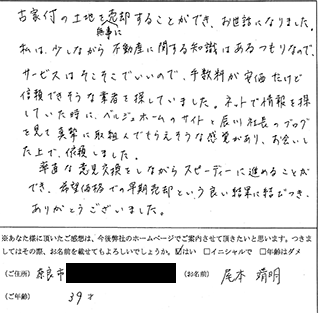 古家付の土地を無事に売却することができ、お世話になりました。
私は、少しながら不動産に関する知識はあるつもりなので、
サービスはそこそこでいいので、手数料が安価だけど
信頼できそうな業者を探していました。ネットで情報を探
していた時に、ベルジュホームのサイトと辰川社長のブログ
を見て真摯に取組んでもらえそうな感覚があり、お会いし
た上で、依頼しました。
率直な意見交換をしながらスピーディーに進めることが
でき、希望価格での早期売却という良い結果に結びつき、
ありがとうございました。
※あなた様に頂いたご感想は、今後弊社のホームページでご案内させて頂きたいと思います。つきま
してはその際、お名前を載せてもよろしいでしょうか。☑はい □イニシャルで □年齢はダメ
(ご住所) 奈良市 (お名前) 尾本 靖明
(ご年齢) 39才